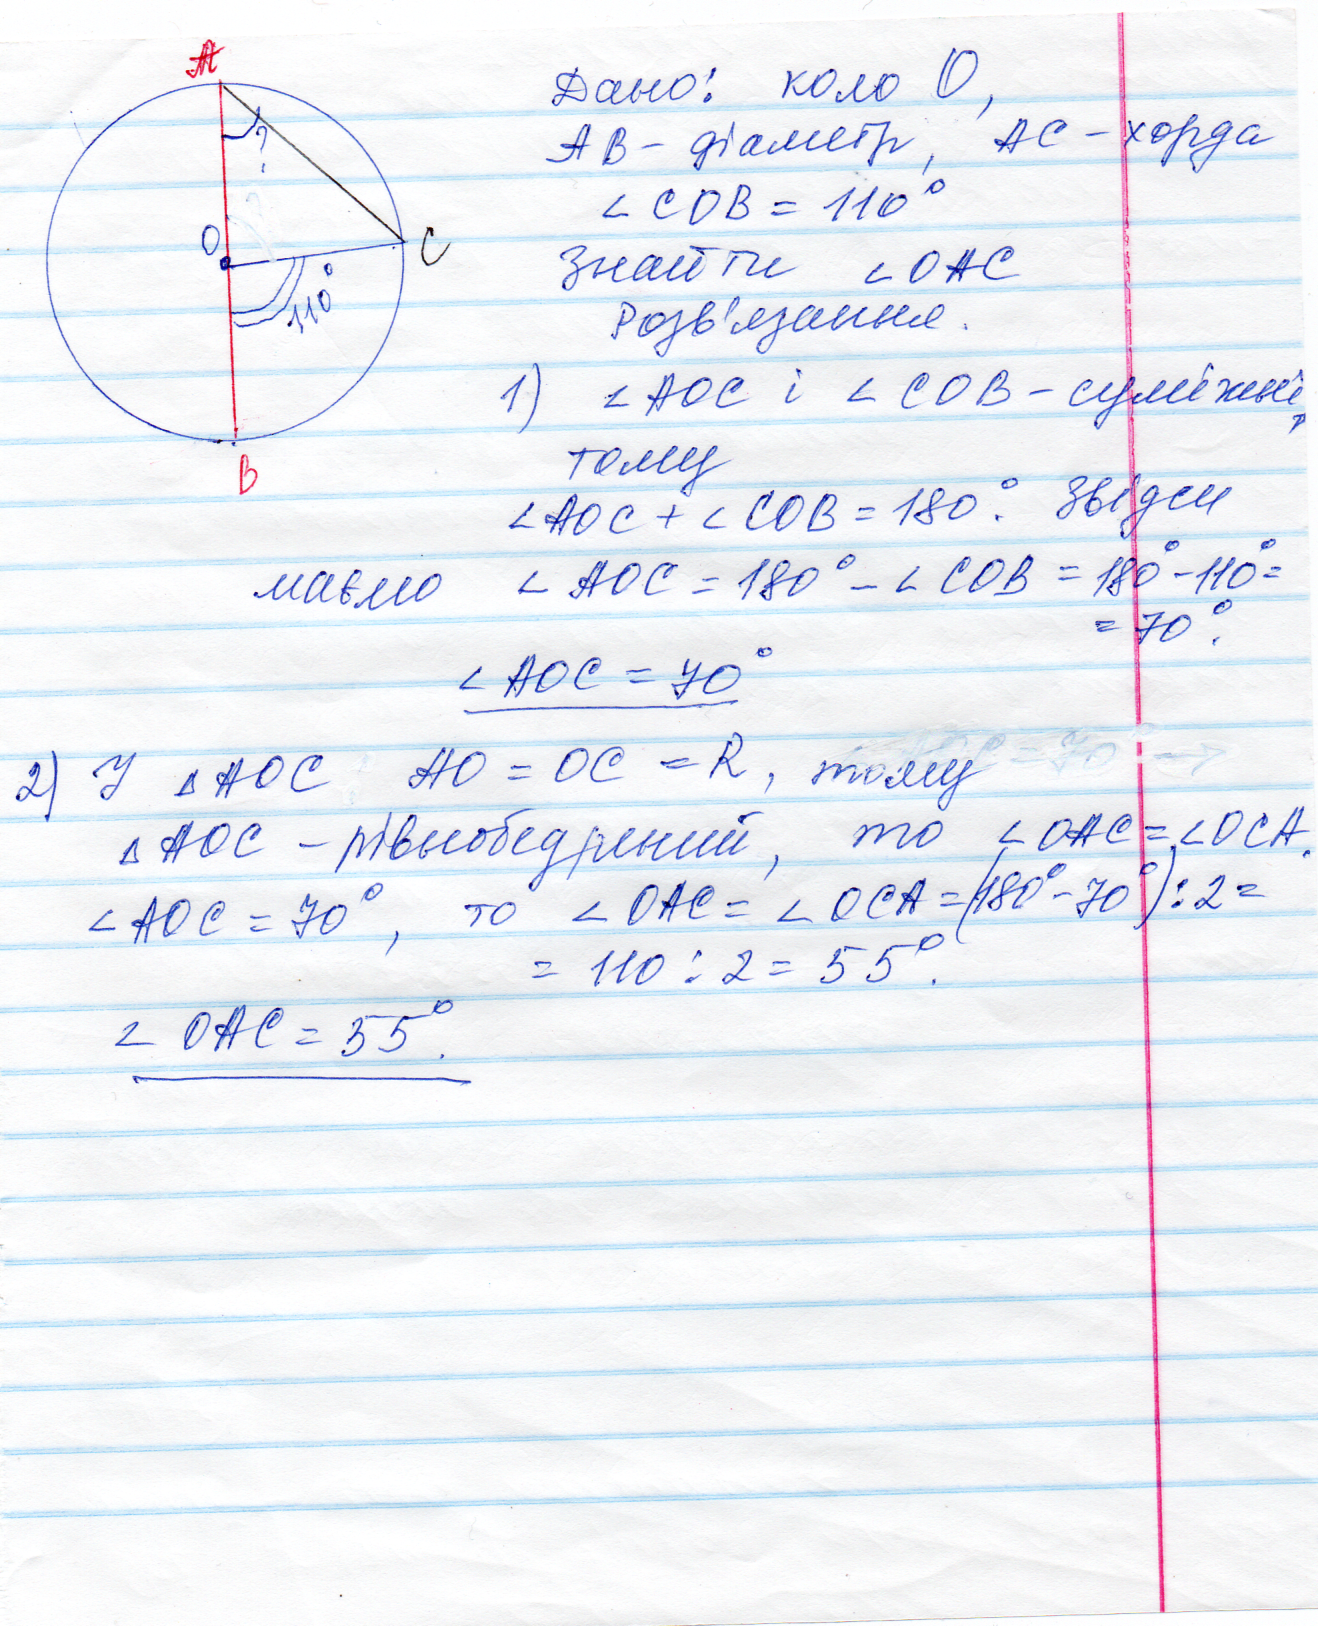 A
?
O
C
110°
B
Дано: коло O,
AB – діаметр, AC – хорда
∠COB = 110°
Знайти ∠OAC
Розв'язання.
1) ∠AOC і ∠COB – суміжні,
тому
∠AOC + ∠COB = 180°. Звідси
маємо ∠AOC = 180° – ∠COB = 180° – 110° =
= 70°.
∠AOC = 70°
2) У △AOC AO = OC = R, тому
△AOC – рівнобедрений, то ∠OAC = ∠OCA.
∠AOC = 70°, то ∠OAC = ∠OCA = (180° – 70°) : 2 =
= 110 : 2 = 55°.
∠OAC = 55°.